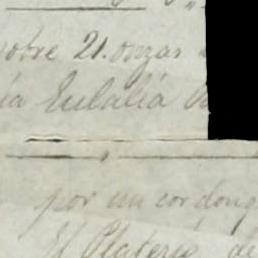 sobre 21. onzas
ia Eulalia
por un cordon
El Platero de